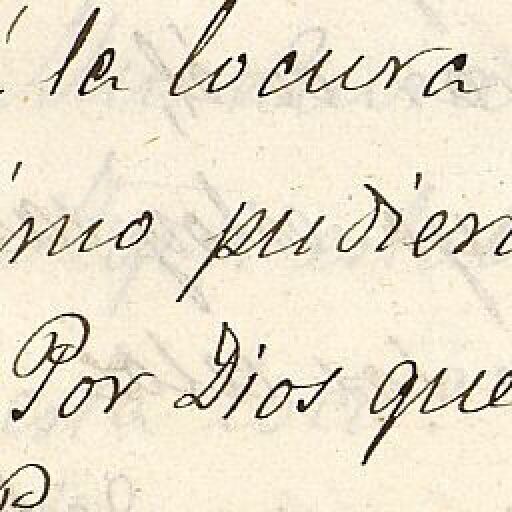 á la locura
ómo pudiera
Por Dios que
P